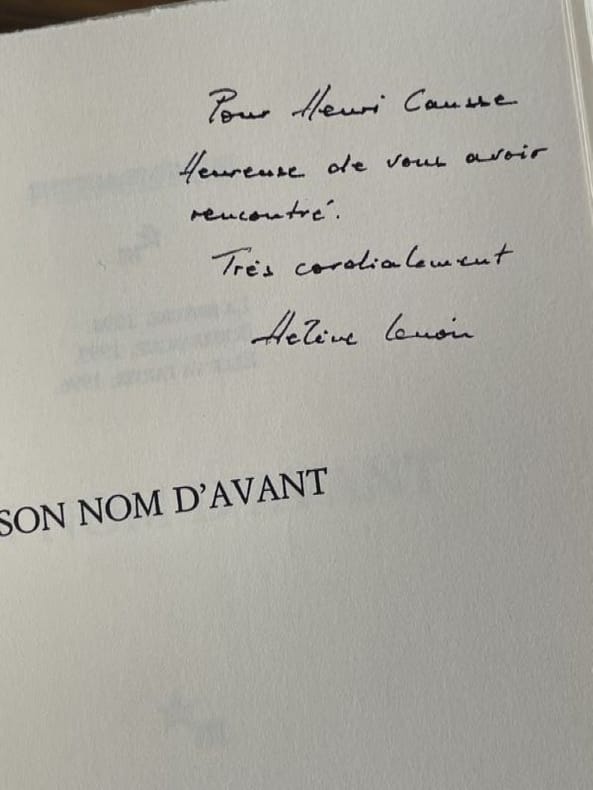 Pour Henri Causse
Heureuse de vous avoir
rencontré.
Très cordialement
Hélène Lenoir
SON NOM D'AVANT